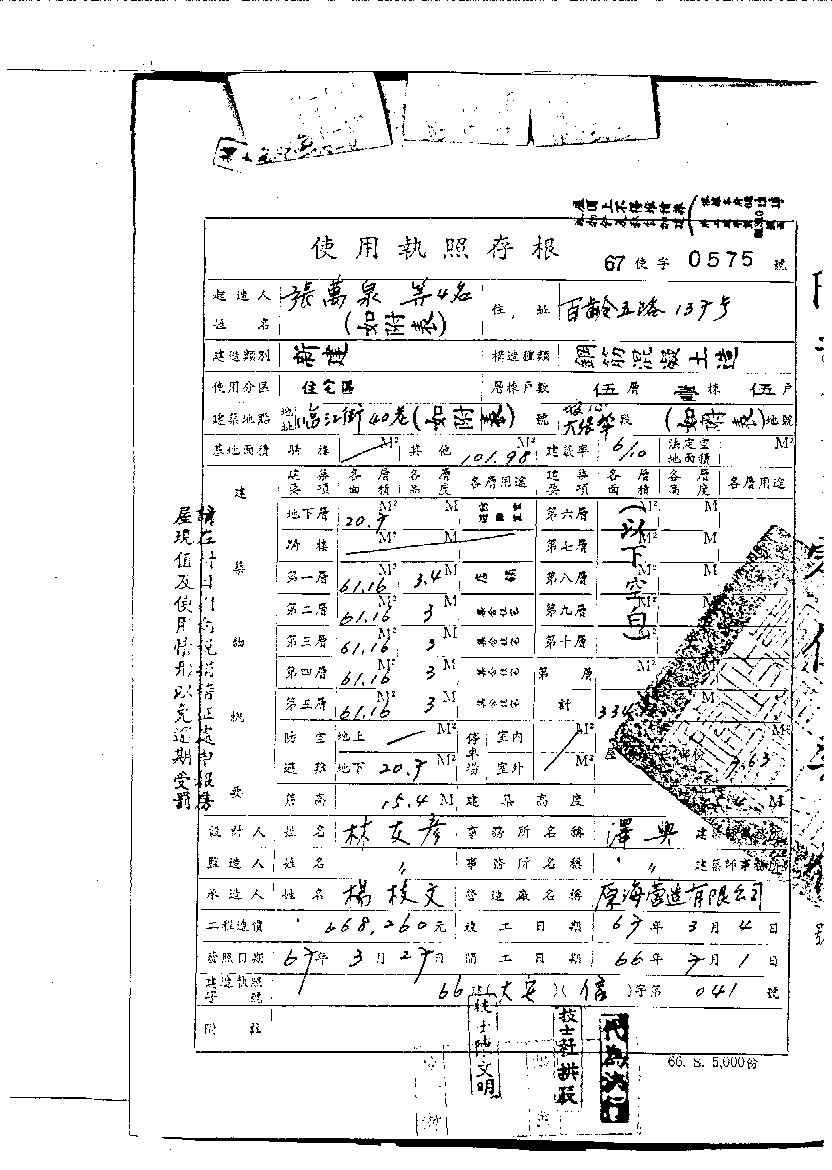 使用執照存根
67使字 0575 號
起造人姓名 張萬泉 等4名 (如附表) 住址 百齡五路137号
建造類別 新建 構造種類 鋼筋混凝土造
使用分區 住宅區 層棟戶數 伍層 壹棟 伍戶
建築地點 地址 臨江街40巷(如附表)號 段 (如附表)地號
基地面積 騎樓 M² 其他 101.98 M² 建蔽率 6/10 法定空地面積 M²
建築物概要 建築要項 各層面積 各層高度 各層用途 建築要項 各層面積 各層高度 各層用途
地下層 20.7 M² M 第六層 M² M
騎樓 M² M 第七層 M² M
第一層 61.16 M² 3.4 M 店舖 第八層 M² M
第二層 61.16 M² 3 M 集合住宅 第九層 M² M
第三層 61.16 M² 3 M 集合住宅 第十層 M² M
第四層 61.16 M² 3 M 集合住宅 第 層
第五層 61.16 M² 3 M 集合住宅 計 334
(以下空白)
防空避難 地上 M² 停車場 室內 M²
地下 20.7 M² 室外 M² 7.63
簷高 15.4 M 建築高度 M
設計人 姓名 林友彥 事務所名稱 澤興
監造人 姓名 〃 事務所名稱 〃 建築師事務所
承造人 姓名 楊枝文 營造廠名稱 原海營造有限公司
工程造價 668,260元 竣工日期 67年3月4日
發照日期 67年3月27日 開工日期 66年7月1日
建造執照字號 66建(大安)(信)字第041號
附註
技士陳文明
代為決行
66. 8. 5,000份